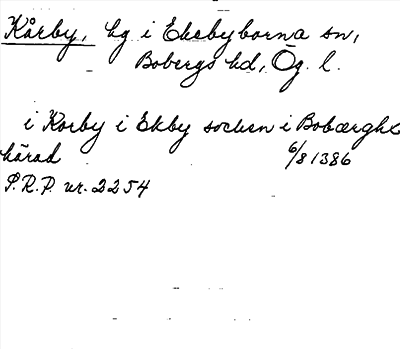 Kårby, hg i Ekebyborna sn,
Bobergs hd, Ög. l.
i Korby i Ekby socken i Bobærghx
härad 6/8 1386
S.R.P. nr. 2254